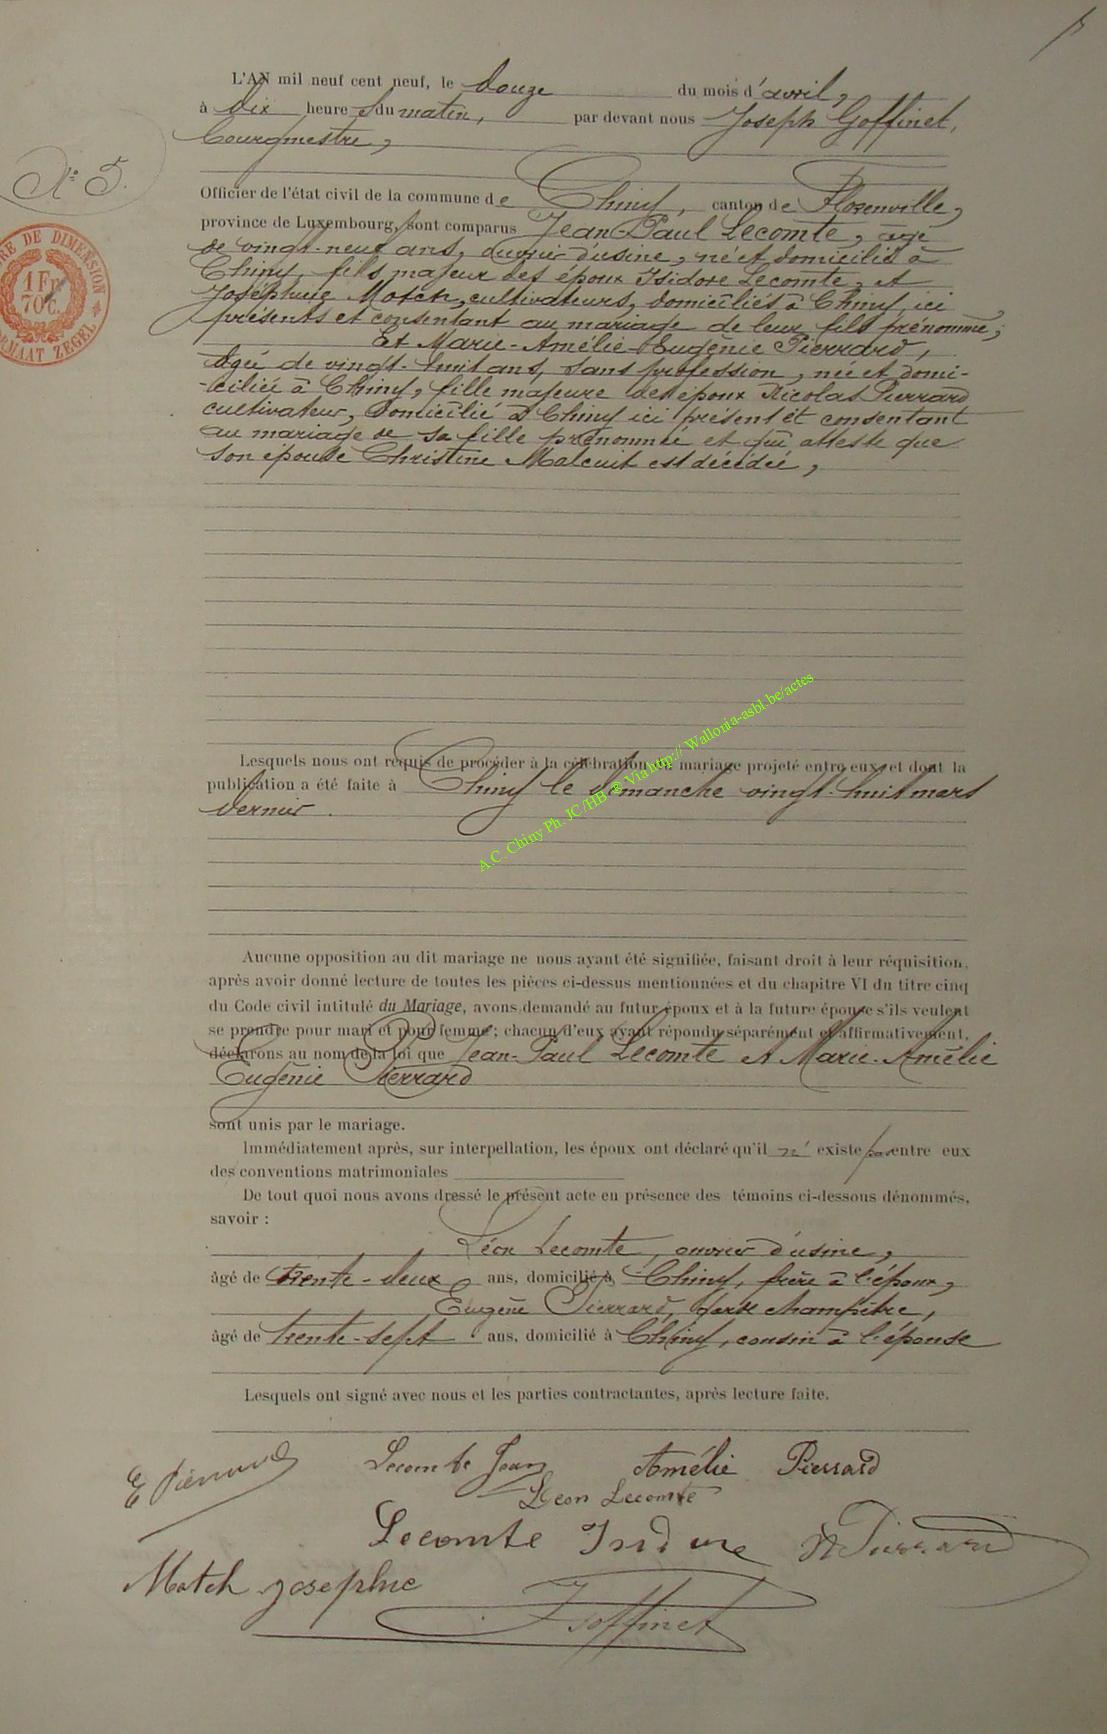 L'AN mil neuf cent neuf, le Douze du mois d'avril,
à Dix heures du matin, par devant nous Joseph Goffinet,
Bourgmestre,
N° 5.
Officier de l'état civil de la commune de Chiny, canton de Florenville,
province de Luxembourg, sont comparus Jean-Paul Lecomte, âgé
de vingt-neuf ans, ouvrier d'usine, né et domicilié à
Chiny, fils majeur des époux Isidore Lecomte, et
Joséphine Motch, cultivateurs, domiciliés à Chiny, ici
présents et consentant au mariage de leur fils prénommé;
Et Marie-Amélie-Eugénie Pierrard,
âgée de vingt-huit ans, sans profession, née et domi-
-ciliée à Chiny, fille majeure des époux Nicolas Pierrard
cultivateur, domicilié à Chiny ici présent et consentant
au mariage de sa fille prénommée et qui atteste que
son épouse Christine Malcuit est décédée,
TIMBRE DE DIMENSION
1 Fr
70 C.
FORMAAT ZEGEL
Lesquels nous ont requis de procéder à la célébration du mariage projeté entre eux, et dont la
publication a été faite à Chiny le dimanche vingt-huit mars
dernier.
A.C. Chiny Ph. JC/HB @ Via http:// Wallonia-asbl-be/actes
Aucune opposition au dit mariage ne nous ayant été signifiée, faisant droit à leur réquisition,
après avoir donné lecture de toutes les pièces ci-dessus mentionnées et du chapitre VI du titre cinq
du Code civil intitulé du Mariage, avons demandé au futur époux et à la future épouse s'ils veulent
se prendre pour mari et pour femme; chacun d'eux ayant répondu séparément et affirmativement,
déclarons au nom de la loi que Jean-Paul Lecomte et Marie-Amélie
Eugénie Pierrard
sont unis par le mariage.
Immédiatement après, sur interpellation, les époux ont déclaré qu'il n' existe pas entre eux
des conventions matrimoniales
De tout quoi nous avons dressé le présent acte en présence des témoins ci-dessous dénommés,
savoir :
Léon Lecomte, ouvrier d'usine,
âgé de trente-deux ans, domicilié à Chiny, frère à l'époux,
Eugène Pierrard, garde champêtre,
âgé de trente-sept ans, domicilié à Chiny, cousin à l'épouse
Lesquels ont signé avec nous et les parties contractantes, après lecture faite.
E Pierrard Lecomte Jean Amélie Pierrard
Léon Lecomte
Lecomte Isidore N Pierrard
Motch Josephine
J Goffinet